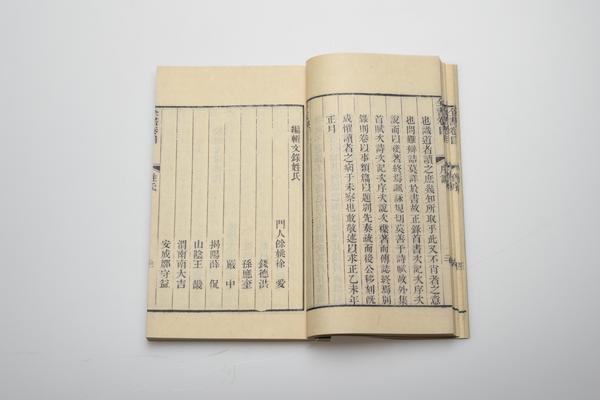 全書卷目
全書卷目
序說
也識道者讀之庶幾知所取乎此又不肖者之意
也問難辯詰莫詳於書故正錄首書次記次序次
說而以雜著終焉諷詠規切莫善于詩賦故外集
首賦次詩次記次序次說次雜著而傳誌終焉別
錄則卷以事類篇以題別先奏疏而後公移刻既
成懼讀者之病于未察也敢敬述以求正乙未年
正月
編輯文錄姓氏
門人餘姚徐愛
錢德洪
孫應奎
嚴中
揭陽薛侃
山陰王畿
渭南南大吉
安成鄒守益
全書卷目
姓氏